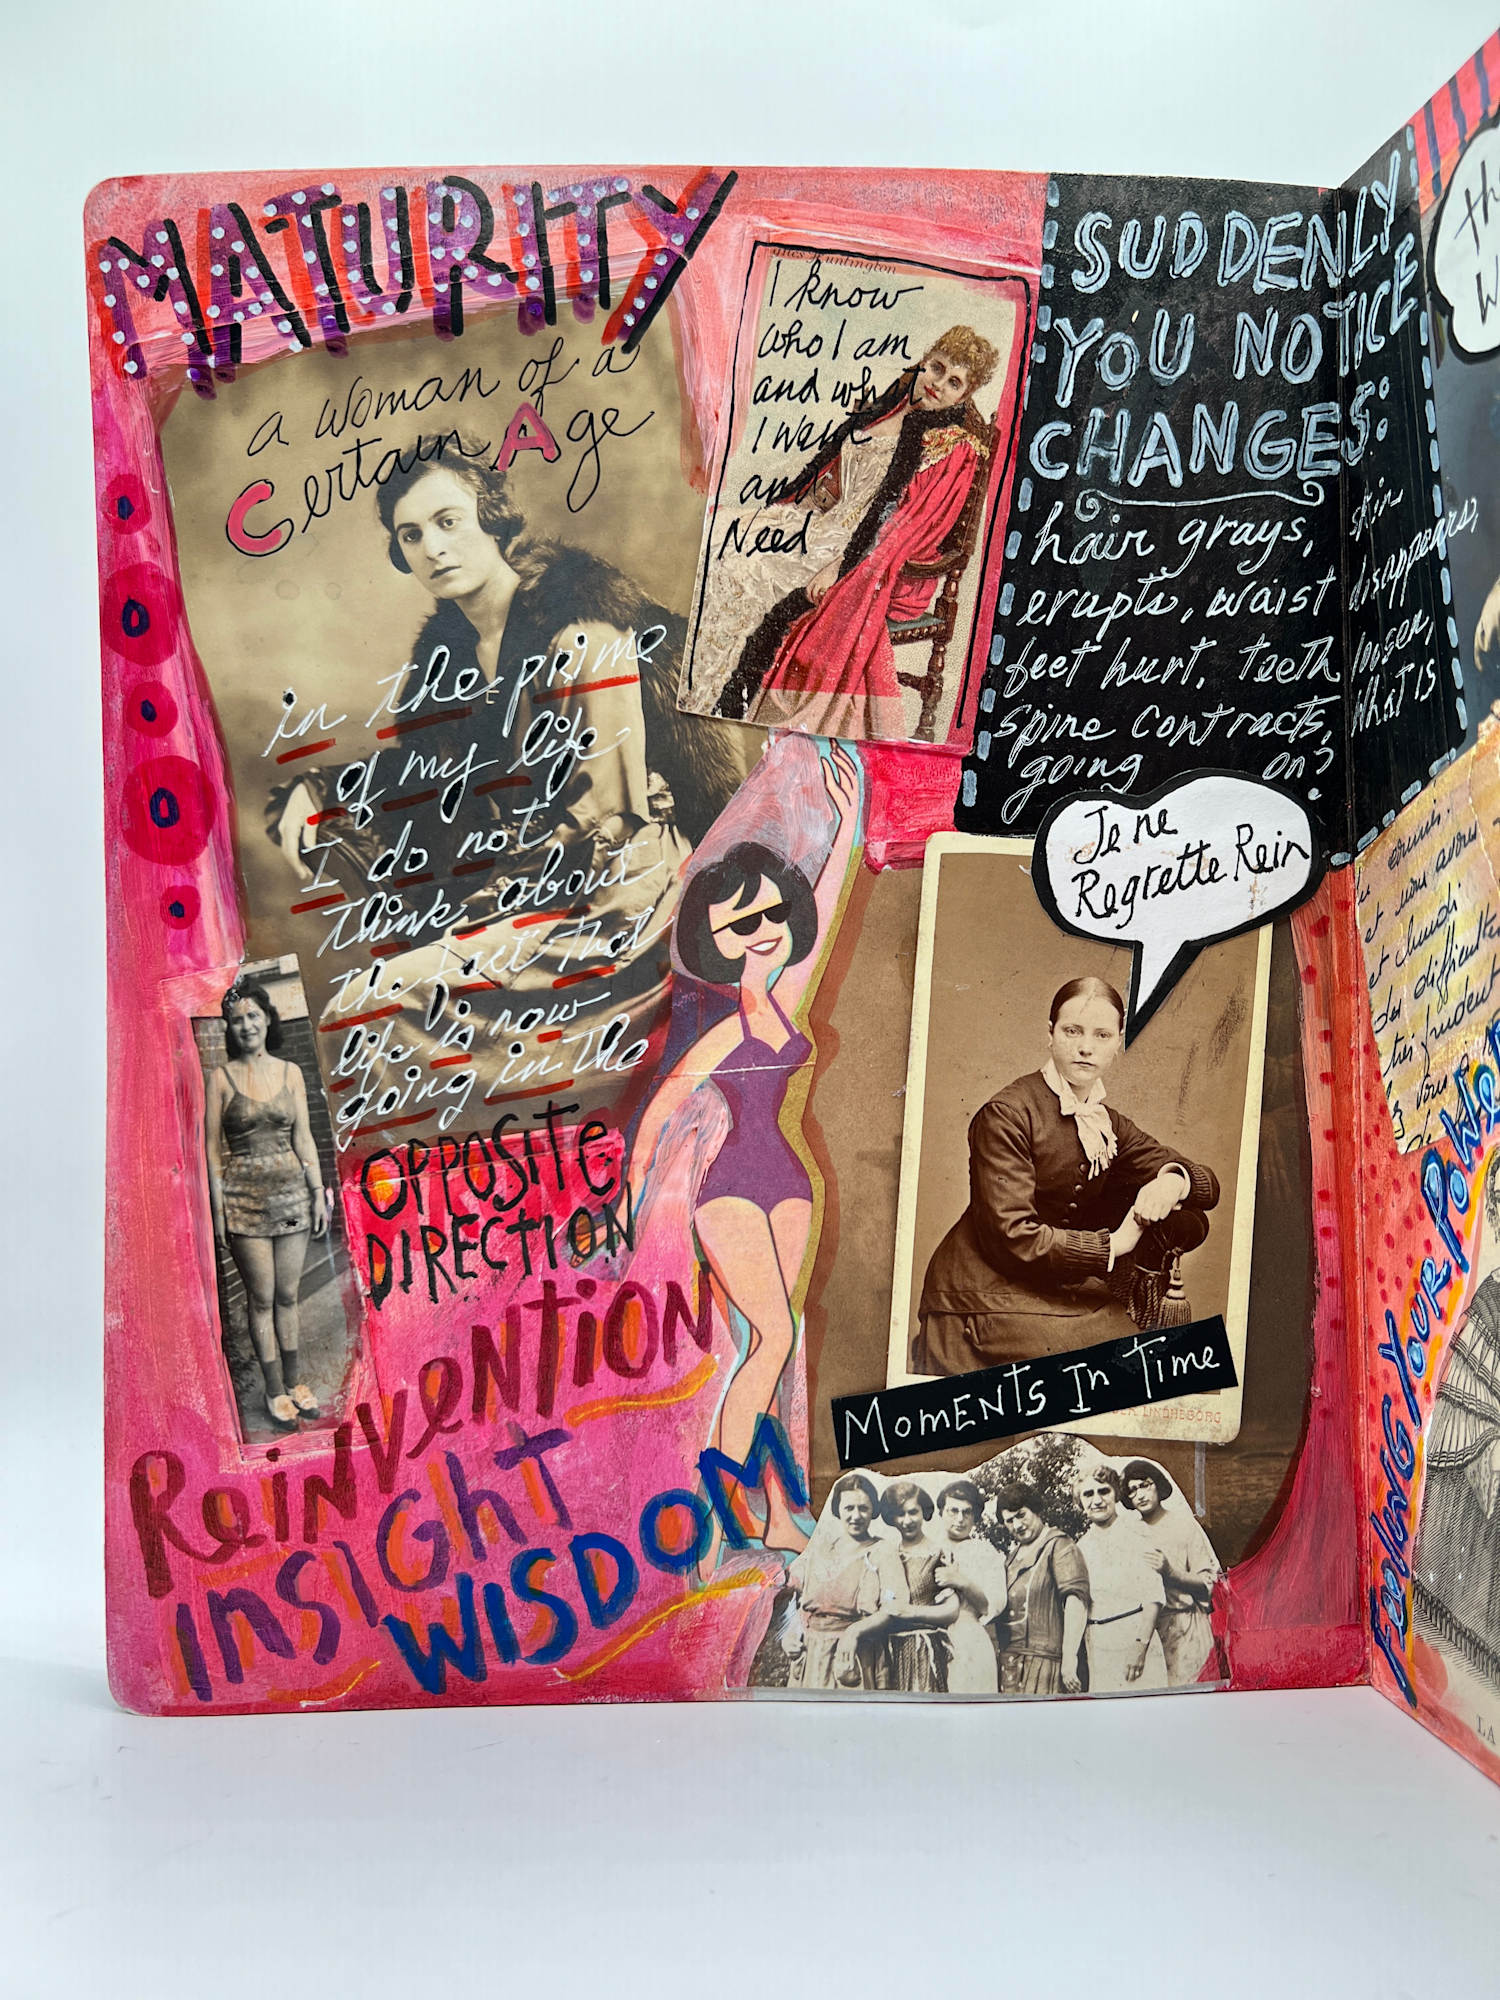 MATURITY
a woman of a
Certain Age
in the prime
of my life
I do not
think about
the fact that
life is now
going in the
OPPOSITE
DIRECTION
ReinventION
InSIGhT
WISDOM
I know
who I am
and what
I want
and
Need
SUDDENLY
YOU NOTICE
CHANGES:
hair grays, skin
erupts, waist disappears,
feet hurt, teeth loosen,
spine contracts, What IS
going on?
Je ne
Regrette Rein
MomENTS In Time
LINDHEGORG
the
W
et vous avons
des difficultés
très prudent
vous
de
Feeling YOUR POWER
LA